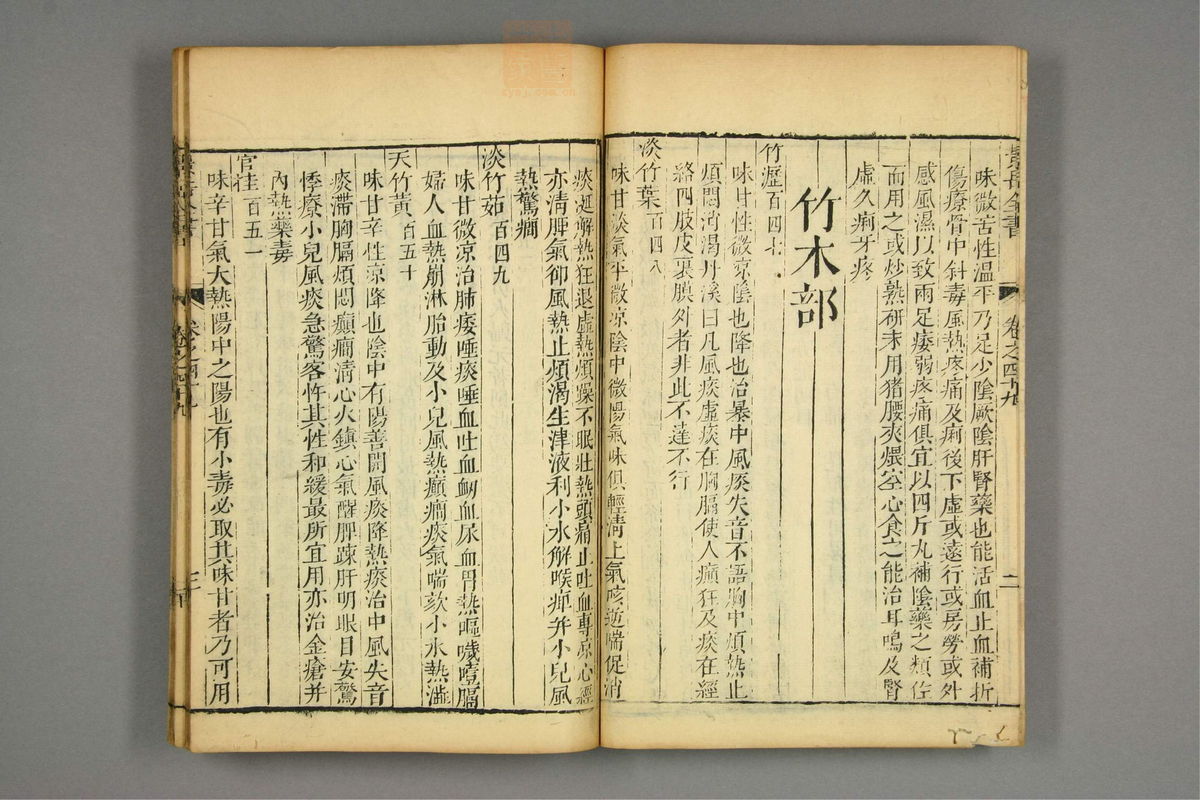 景岳全書 卷之四十九
味微苦性溫平乃足少陰厥陰肝腎藥也能活血止血補折
傷療骨中斜毒風熱疼痛及痢後下虛或遠行或房勞或外
感風濕以致兩足痿弱疼痛俱宜以四斤丸補陰藥之類佐
而用之或炒熟研末用猪腰夾煨空心食之能治耳鳴及腎
虛久痢牙疼
竹木部
竹瀝百四七
味甘性微凉陰也降也治暴中風痰失音不語胸中煩熱止
煩悶消渴丹溪曰凡風痰虛痰在胸膈使人癲狂及痰在經
絡四肢皮裏膜外者非此不達不行
淡竹葉百四八
味甘淡氣平微凉陰中微陽氣味俱輕清上氣咳逆喘促消
痰涎解熱狂退虛熱煩躁不眠壯熱頭痛止吐血專凉心經
亦清脾氣卻風熱止煩渴生津液利小水解喉痺并小兒風
熱驚癇
淡竹茹百四九
味甘微凉治肺痿唾痰唾血吐血衂血尿血胃熱嘔噦噎膈
婦人血熱崩淋胎動及小兒風熱癲癇痰氣喘欬小水熱澁
天竹黃百五十
味甘辛性凉降也陰中有陽善開風痰降熱痰治中風失音
痰滯胸膈煩悶癲癇清心火鎮心氣醒脾疎肝明眼目安驚
悸療小兒風痰急驚客忤其性和緩最所宜用亦治金瘡并
內熱藥毒
官桂百五一
味辛甘氣大熱陽中之陽也有小毒必取其味甘者乃可用